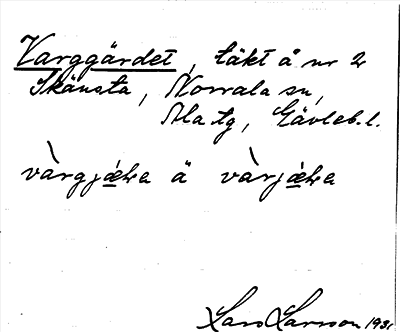 Varggärdet, täkt å nr 2
Skänsta, Norrala sn,
Ala tg, Gävleb.l.
vàrgjæ̀ɫa ä vàrjæ̀ɫa
Lars Larsson 193